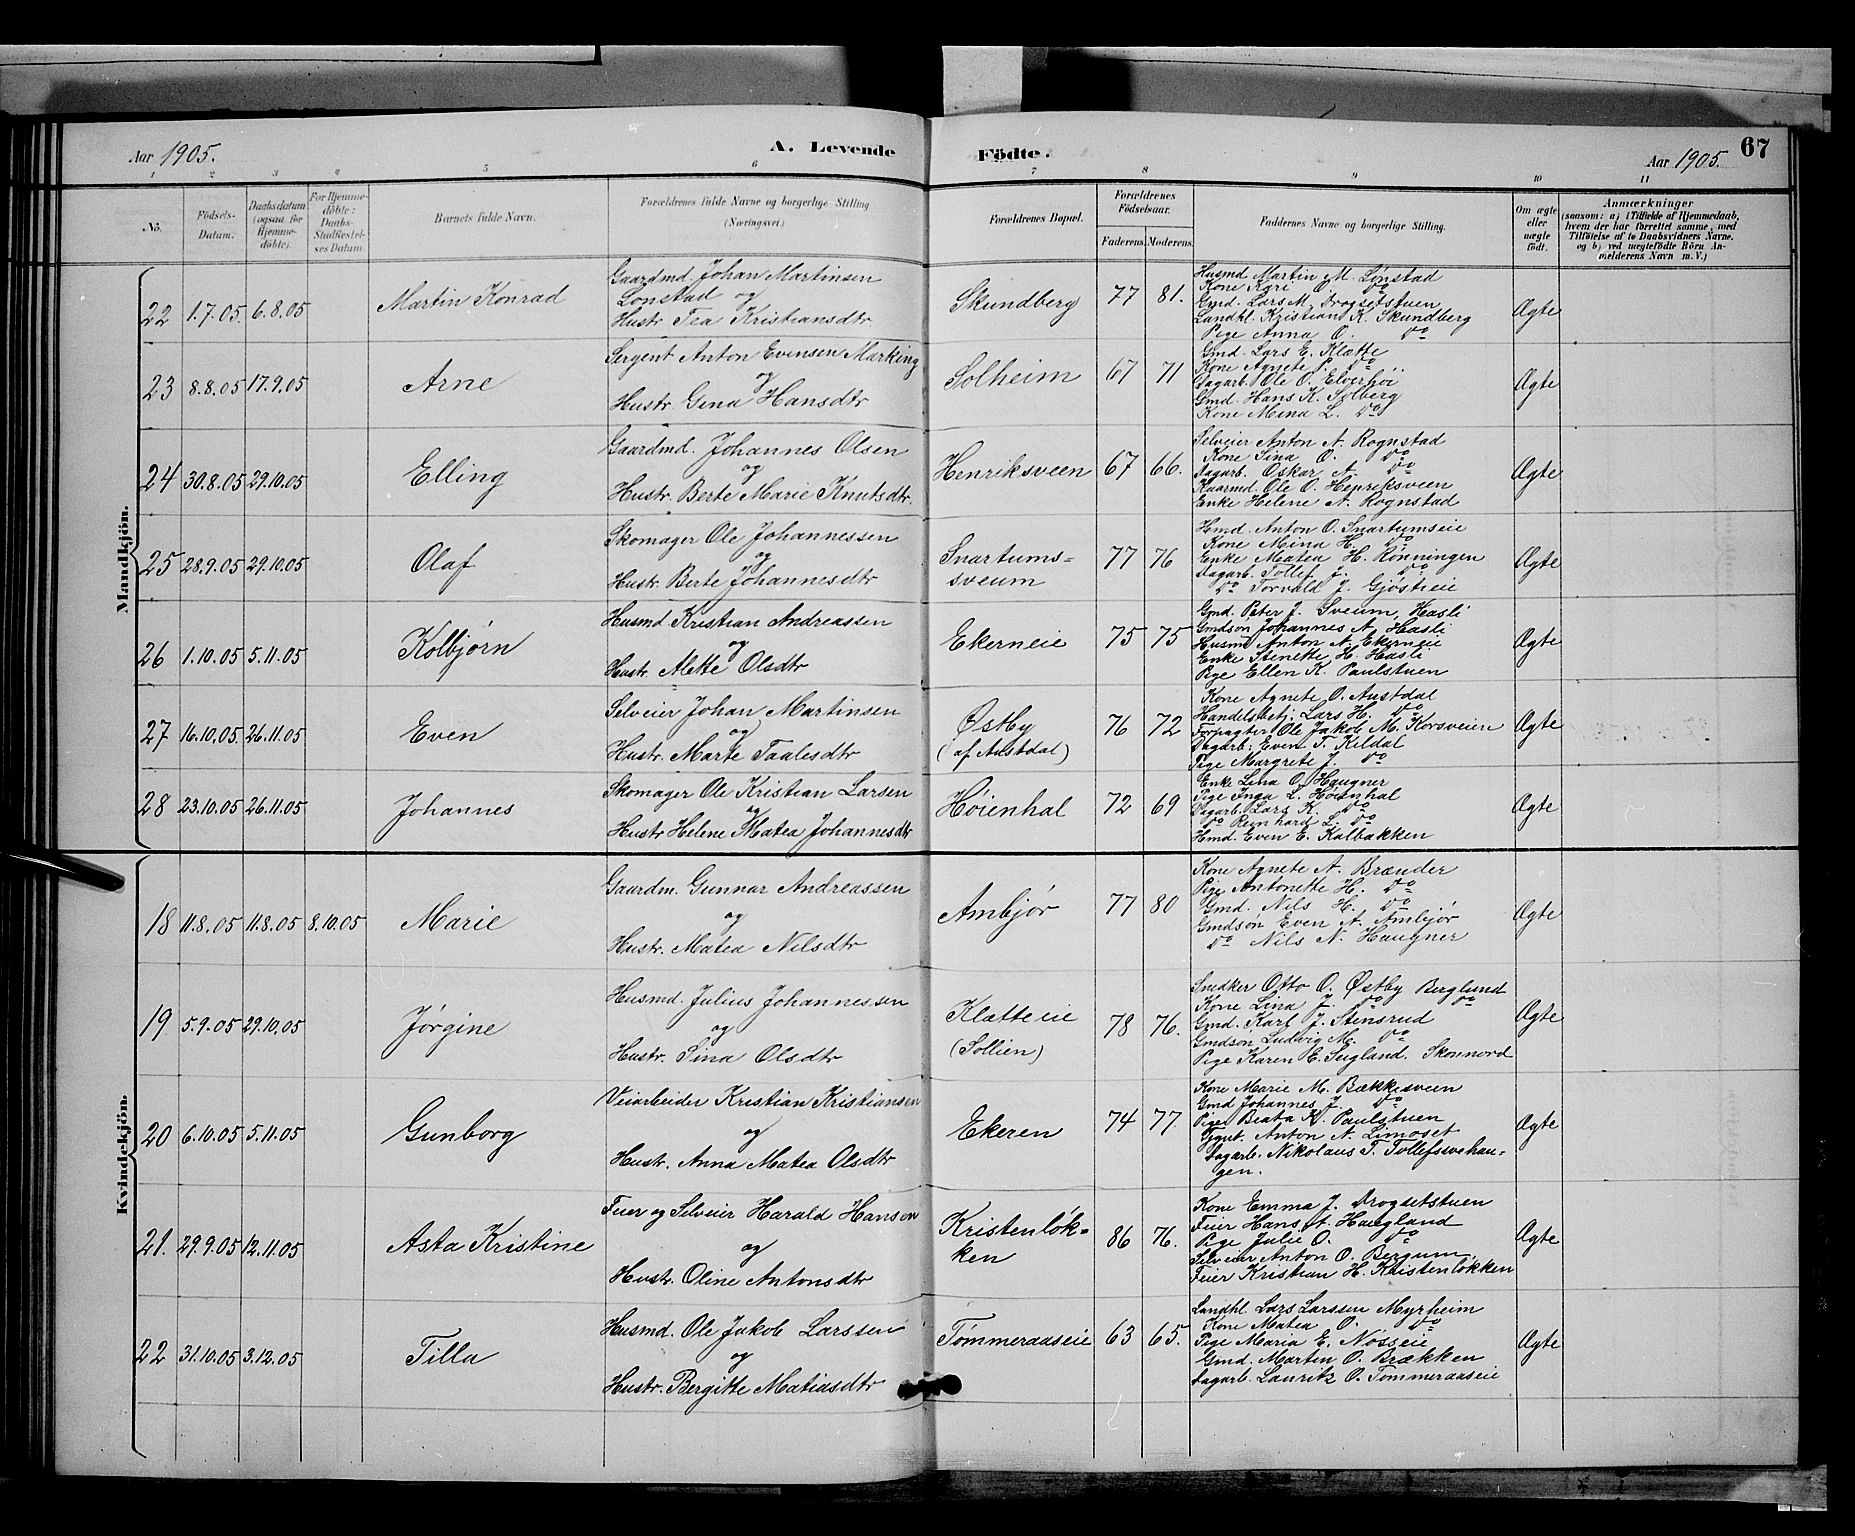 Aar 1905.
A. Levende
Födte.
Aar 1905.
67
1 2 3 4 5 6 7 8 9 10 11
No.
Födsels-Datum.
Daabsdatum (ogsaa for Hjemme-döbte).
For Hjemme-döbte: Daabs-Stadfæstel-ses Datum
Barnets fulde Navn.
Forældrenes fulde Navne og borgerlige Stilling (Næringsvei).
Forældrenes Bopæl.
Forældrenes Födselsaar.
Faderens. Moderens.
Faddernes Navne og borgerlige Stilling.
Om ægte eller uægte födt.
Anmærkninger
(saasom: a) i Tilfælde af Hjemmedaab, hvem der har forrettet samme, med Tilföielse af to Daabsvidners Navne, og b) ved uægtefödte Börn An-melderens Navn m. V.)
Mandkjön.
22 1.7.05. 6.8.05 Martin Konrad
Gaardmd. Johan Martinsen
Lönstad og
Hustr. Tea Kristiansdtr.
Skundberg 77 81.
Husmd Martin M. Lönstad
Kone Kari O. do
Gmd. Lars M. Drogsetstuen
Landhl. Kristian K. Skundberg
Pige Anna O. do
Ægte
23 8.8.05 17.9.05 Arne
Sergent Anton Evensen Marking
og
Hustr. Gina Hansdtr
Solheim 67 71
Gmd. Lars E. Klætte
Kone Agnete P. do
Dagarb. Ole O. Elverhöi
Gmd. Hans K. Solberg
Kone Mina L. do
Ægte
24 30.8.05 29.10.05 Elling
Gaardmd. Johannes Olsen
og
Hustr. Berte Marie Knutsdtr.
Henriksveen 67 66.
Selveier Anton A. Rognstad
Kone Sina O. do
Dagarb. Oskar A. do
Kaarmd. Ole O. Henriksveen
Enke Helene A. Rognstad
Ægte
25 28.9.05 29.10.05 Olaf
Skomager Ole Johannessen
og
Hustr. Berte Johannesdtr
Snartums-
sveum 77 76
Hmd. Anton O. Snartumseie
Kone Mina H. do
Enke Matea H. Rönningen
Dagarb. Tollef J. do
do Torvald J. Gjöstieie
Ægte
26 1.10.05 5.11.05 Kolbjörn
Husmd Kristian Andreassen
og
Hustr. Mette Olsdtr
Ekerneie 75 75
Gmd. Peter J. Sveum, Hasli
Gmdsön Johannes A. Hasli
Husm Anton A. Ekerneie
Enke Stenette H. Hasli
Pige Ellen K. Paulstuen
Ægte
27 16.10.05. 26.11.05 Even
Selveier Johan Martinsen
og
Hustr. Marte Taalesdtr
Östby
(af Austdal) 76 72
Kone Agnete O. Austdal
Handelsbetj. Lars H. do
Forpagter Ole Jakob M. Korsveien
Dagarb. Even T. Kildal
Pige Margrete J. do
Ægte
28 23.10.05 26.11.05 Johannes
Skomager Ole Kristian Larsen
og
Hustr Helene Matea Johannesdtr
Höienhal 72 69
Enke Lina O. Haugner
Pige Inga L. Höienhal
Dagarb. Lars K. do
do Reinhard L. do
Hmd. Even E. Kalbakken
Ægte
Kvindekjön.
18 11.8.05 11.8.05 8.10.05 Marie
Gaardm. Gunnar Andreassen
og
Hustr. Matea Nilsdtr
Ambjör 77 80
Kone Agnete A. Brænder
Pige Antonette H. do
Gmd. Nils H. do
Gmdsön Even A. Ambjör
do Nils N. Haugner
Ægte
19 5.9.05 29.10.05 Jörgine
Husmd. Julius Johannessen
og
Hustr. Sina Olsdtr
Klætteeie
(Sollien) 78 76.
Snedker Otto O. Östby Berglund
Kone Lina J. do do
Gmd. Karl J. Stensrud
Gmdsön Ludvig M. do
Pige Karen E. Sugland. Skonnord
Ægte
20 6.10.05 5.11.05 Gunborg
Veiarbeider Kristian Kristiansen
og
Hustr. Anna Matea Olsdtr
Ekeren 74 77.
Kone Marie M. Bækkesveen
Gmd Johannes J. do
Pige Beata K. Paulstuen
Tjgut. Anton A. Limoset
Dagarb. Nikolaus T. Tollefsvehau-
gen.
Ægte
21. 29.9.05 12.11.05 Asta Kristine
Feier og Selveier Harald Hansen
og
Hustr. Oline Antonsdtr
Kristenlök-
ken 86 76.
Kone Emma J. Drogsetstuen
Feier Hans A. Haugland
Pige Julie O. do
Selveier Anton O. Bergum
Feier Kristian H. Kristenlökken
Ægte
22 31.10.05 3.12.05 Tilla
Husmd. Ole Jakob Larssen
og
Hustr. Bergitte Matiasdtr
Tömmeraaseie 63 65.
Landhl. Lars Larssen Myrheim
Kone Matea O. do
Pige Maria E. Nösseie
Gmd. Martin O. Brækken
Dagarb. Laurits O. Tömmeraaseie
Ægte